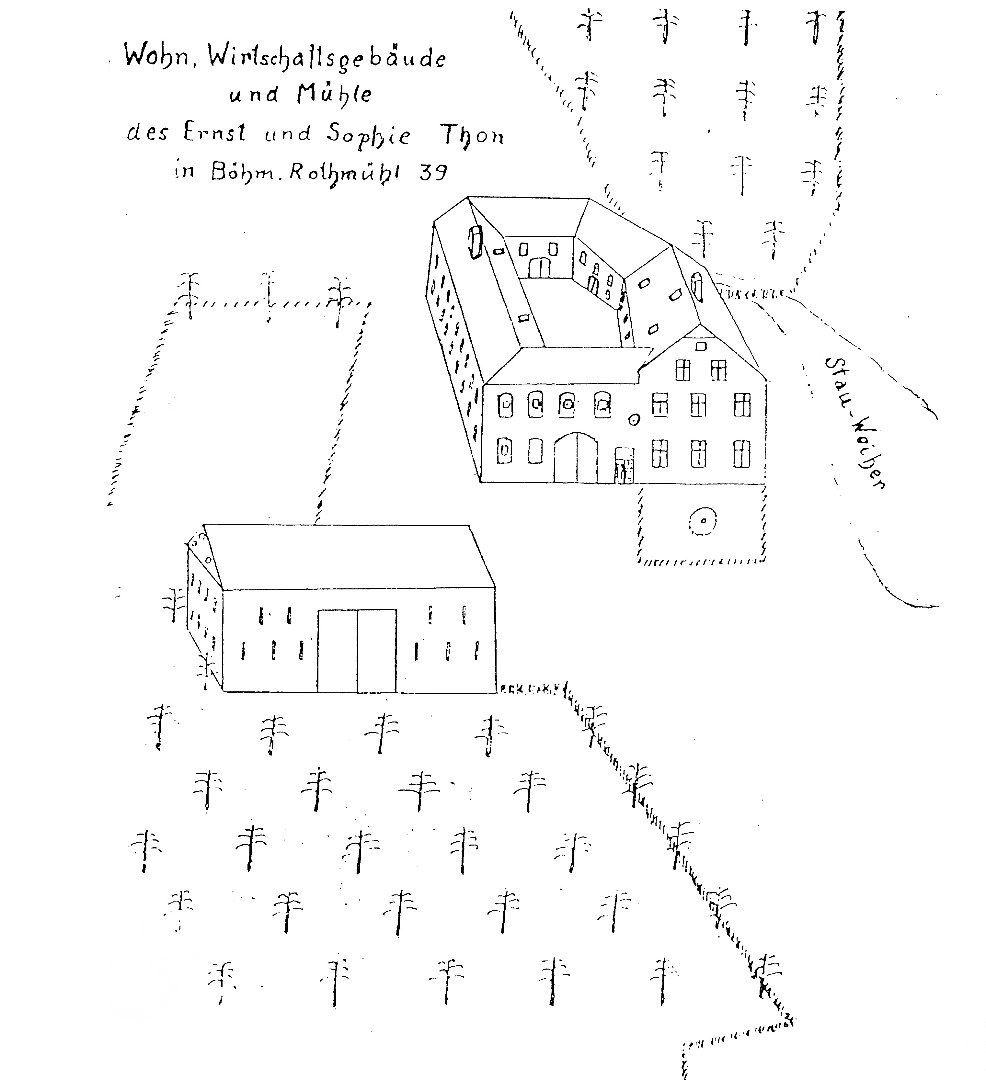 Wohn, Wirtschaftsgebäude
und Mühle
des Ernst und Sophie Thon
in Böhm. Rothmühl 39
Stau-Weiher